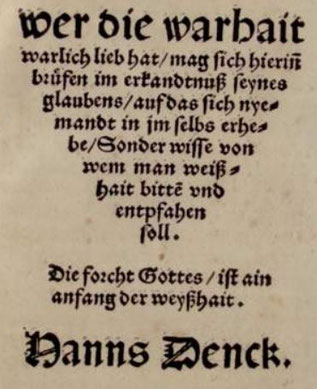 wer die warhait
warlich lieb hat/mag sich hieriñ
brüfen im erkandtnuß seynes
glaubens/auf das sich nye⸗
mandt in jm selbs erhe⸗
be/Sonder wisse von
wem man weiß⸗
hait bittẽ vnd
entpfahen
soll.
Die forcht Gottes/ist ain
anfang der weyßhait.
Hanns Denck.